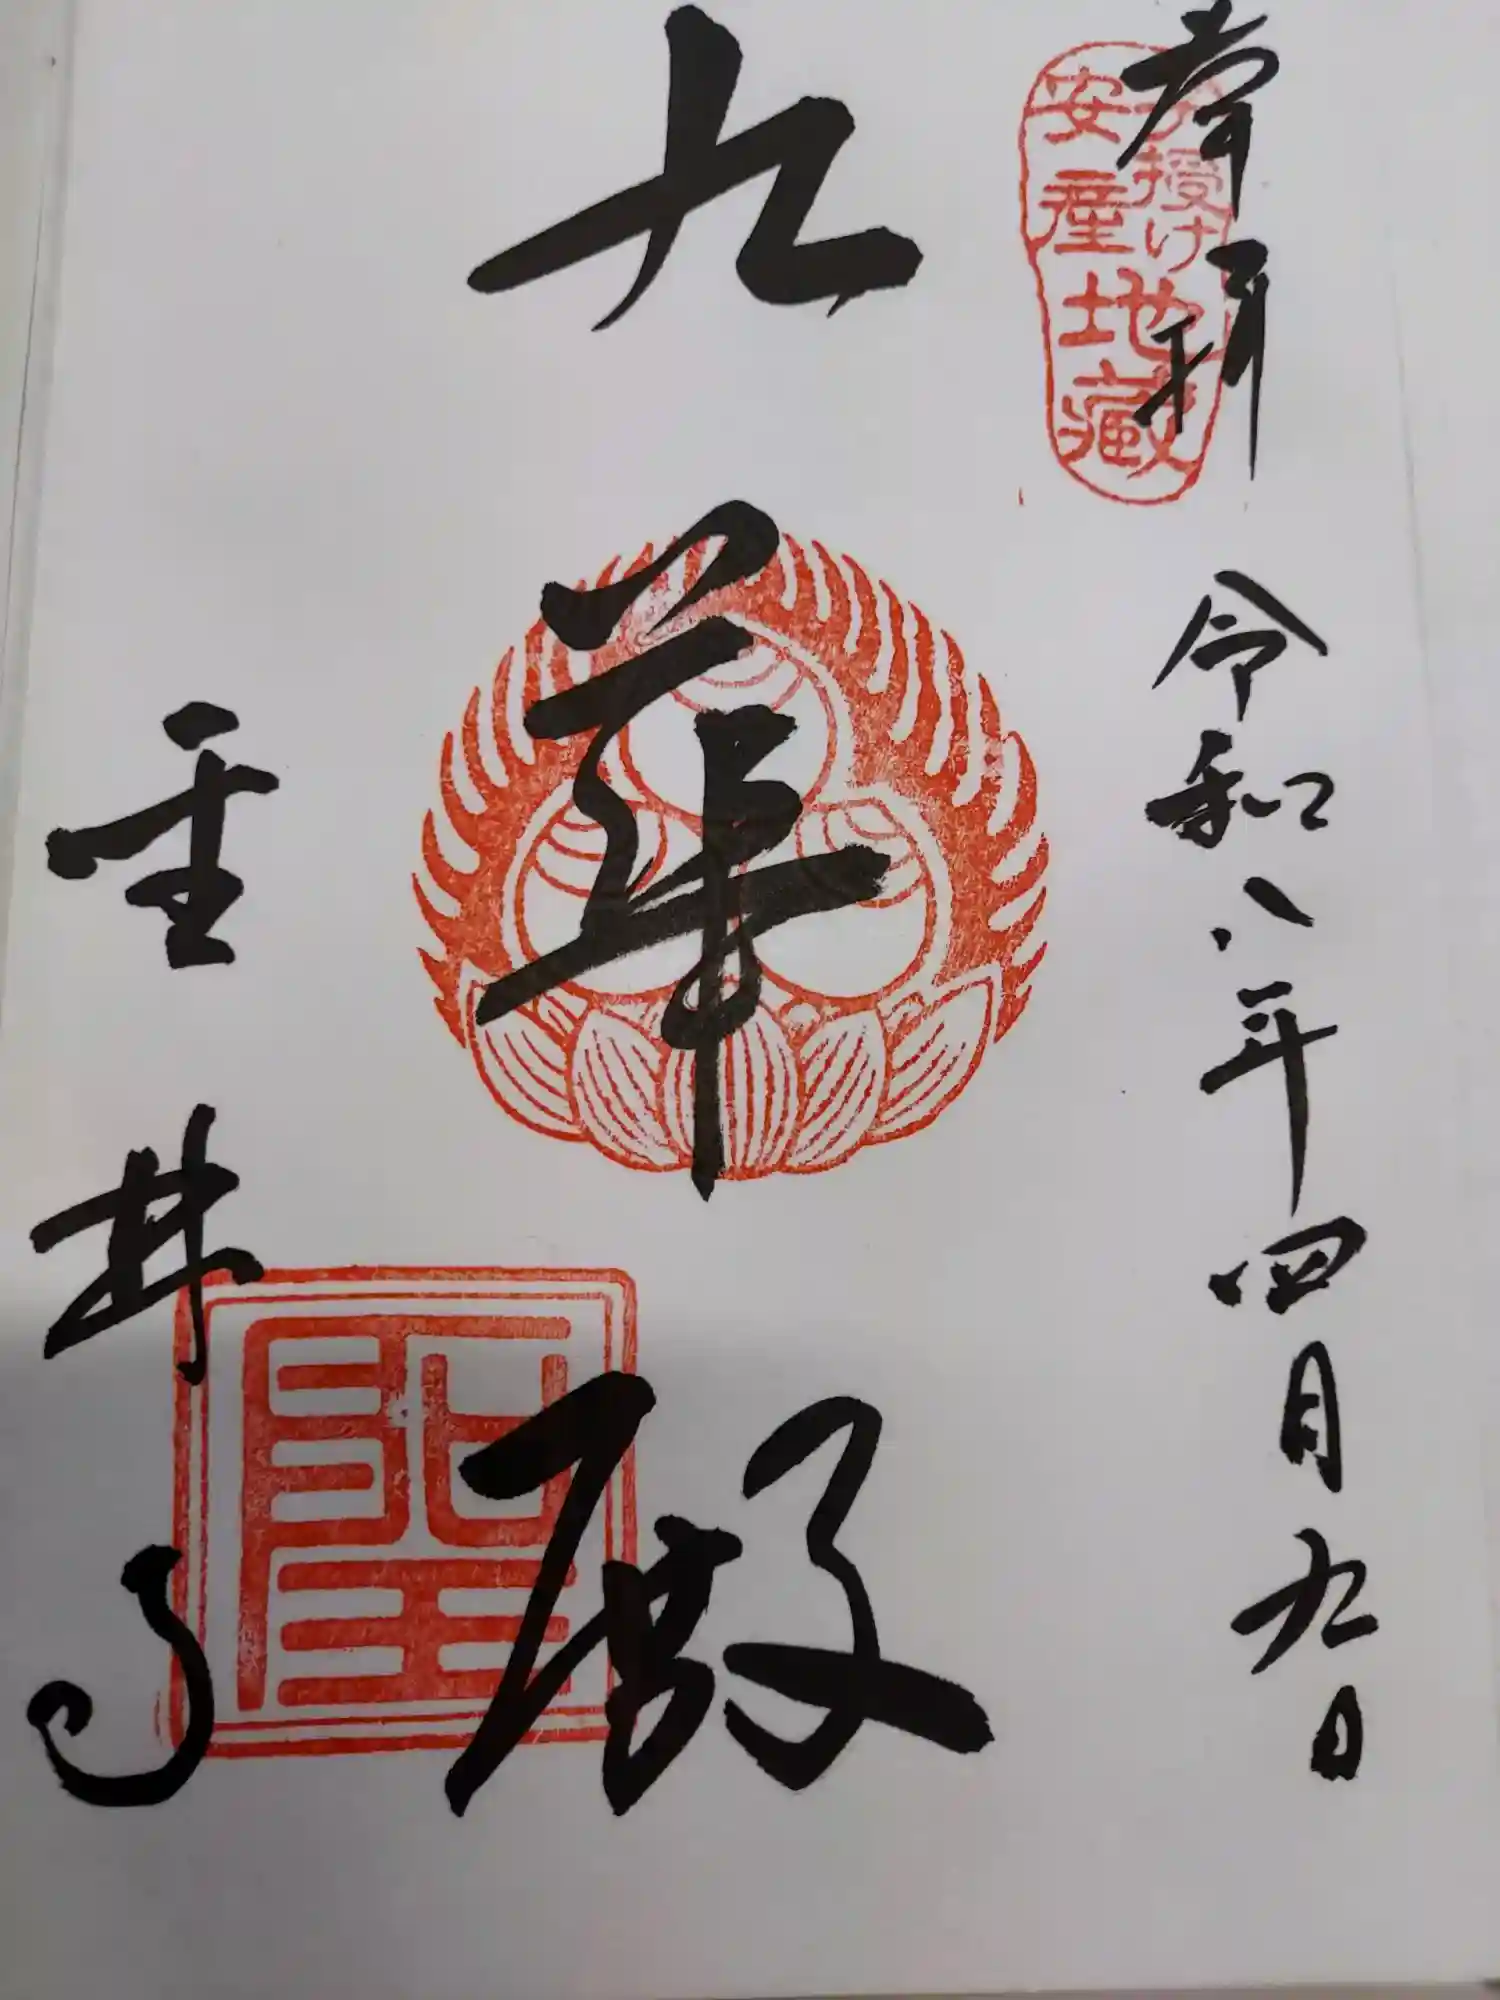 奉拝 令和八年四月九日
子授け
安産
地蔵
九華殿
聖林寺
聖